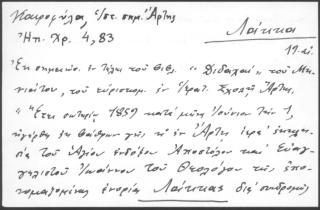 Γκιαμζήλας, ἐ/στ. σημ. Ἄρτης
Ἠπ. Χρ. 4, 83
Λάκκα
Ἐκ σημειώσ. ἐν τέλει τοῦ βιβλ. "Διδαχαὶ" τοῦ Μη-
νιάτου, τοῦ εὑρισκομ. ἐν Ἱερατ. Σχολῇ Ἄρτης.
"Ἔτει σωτηρίῳ 1859 κατὰ μῆνα Ἰούνιον τὴν 1,
ἠγέρθη ἐκ βάθρων γῆς, ἡ ἐν Ἄρτῃ ἱερὰ ἐκκλη-
σία τοῦ Ἁγίου ἐνδόξου Ἀποστόλου καὶ Εὐαγ-
γελιστοῦ Ἰωάννου τοῦ Θεολόγου τῆς ἐπο-
νομαζομένης ἐνορίας Λάκκας διὰ συνδρομῆς